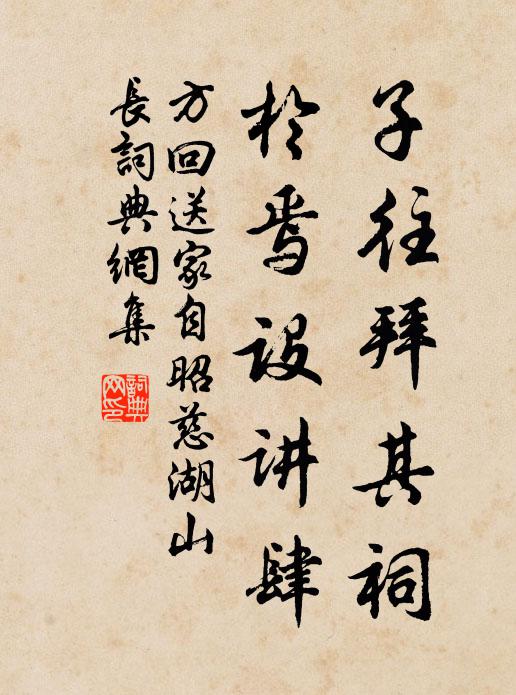 子往拜其祠
於焉设讲肆
方回送家自昭慈湖山
長詞典網集
詞典网印